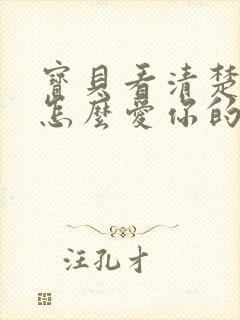 寶貝看清楚
怎麼愛你的
汪孔才